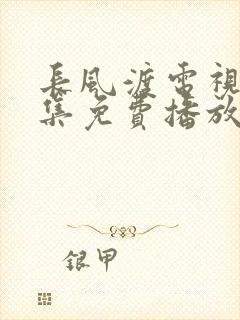 長風渡電視
集免費播放
銀甲